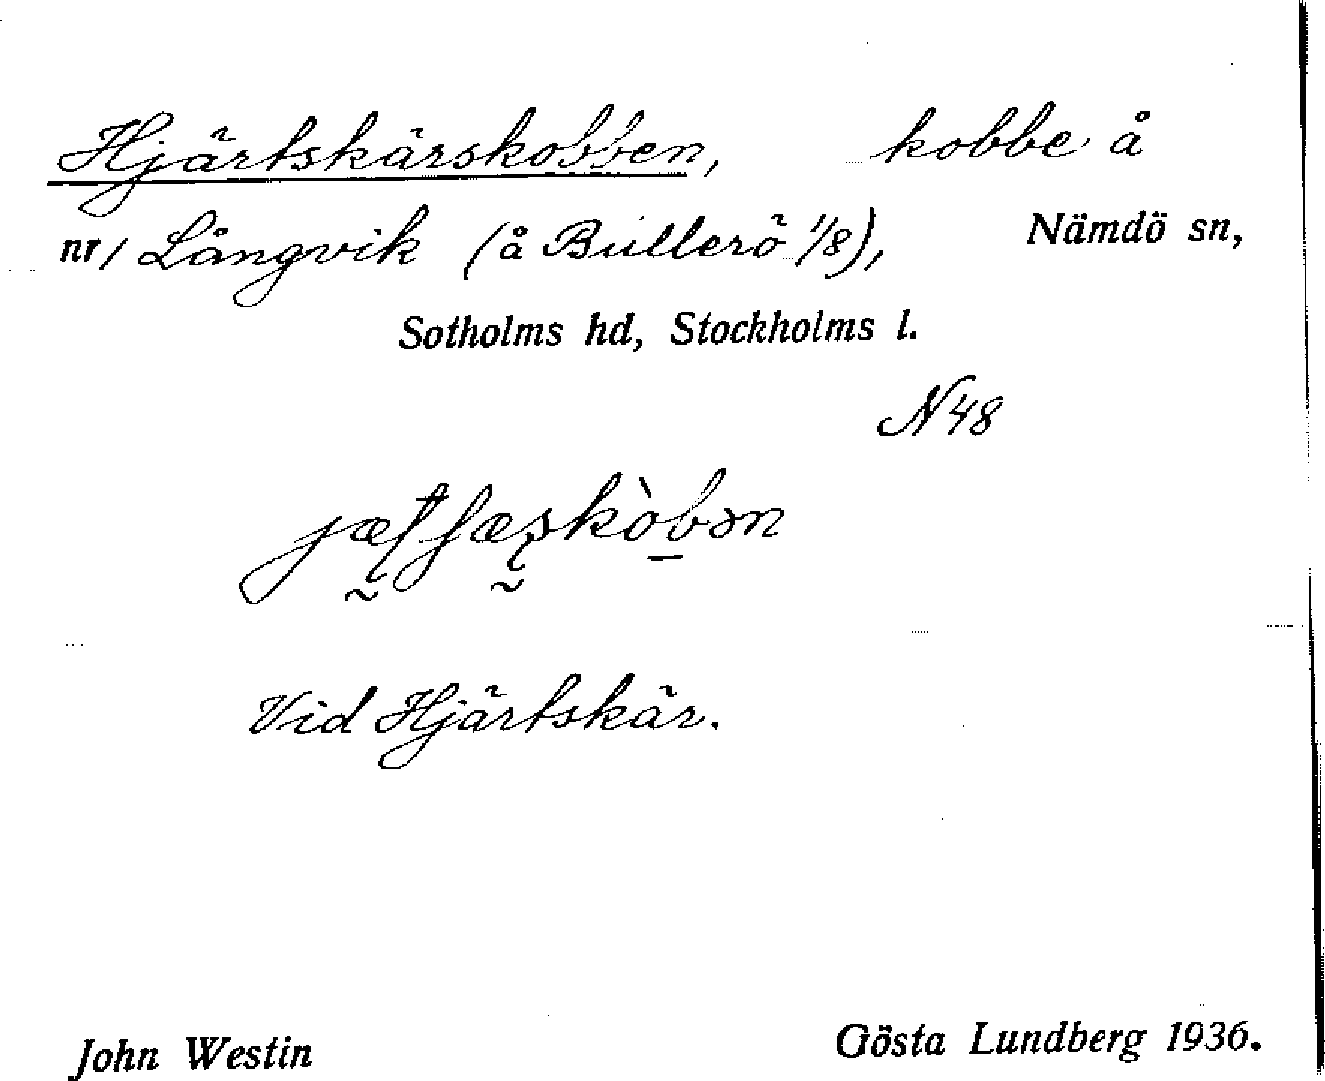 Hjärtskärskobben, kobbe å
nr / Långvik (å Bullerö 1/8), Nämdö sn,
Sotholms hd, Stockholms l.
N48
Vid Hjärtskär.
John Westin Gösta Lundberg 1936.